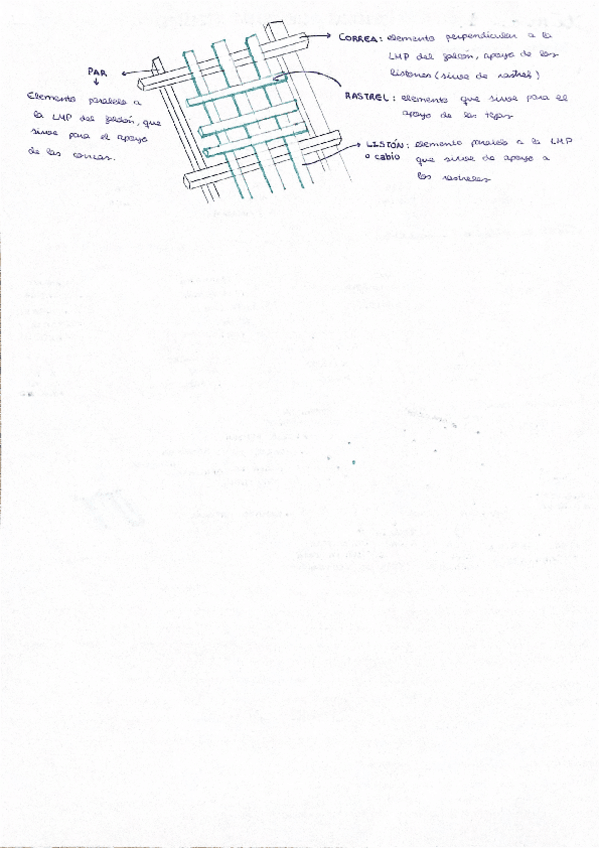 PAR
Elemento paralelo a
la LMP del faldón, que
sirve para el apoyo
de las correas.
CORREA: elemento perpendicular a la
LMP del faldón, apoyo de los
listones (sirve de rastrel)
RASTREL: elemento que sirve para el
apoyo de las tejas
LISTÓN: elemento paralelo a la LMP
o cabio que sirve de apoyo a
los rastreles